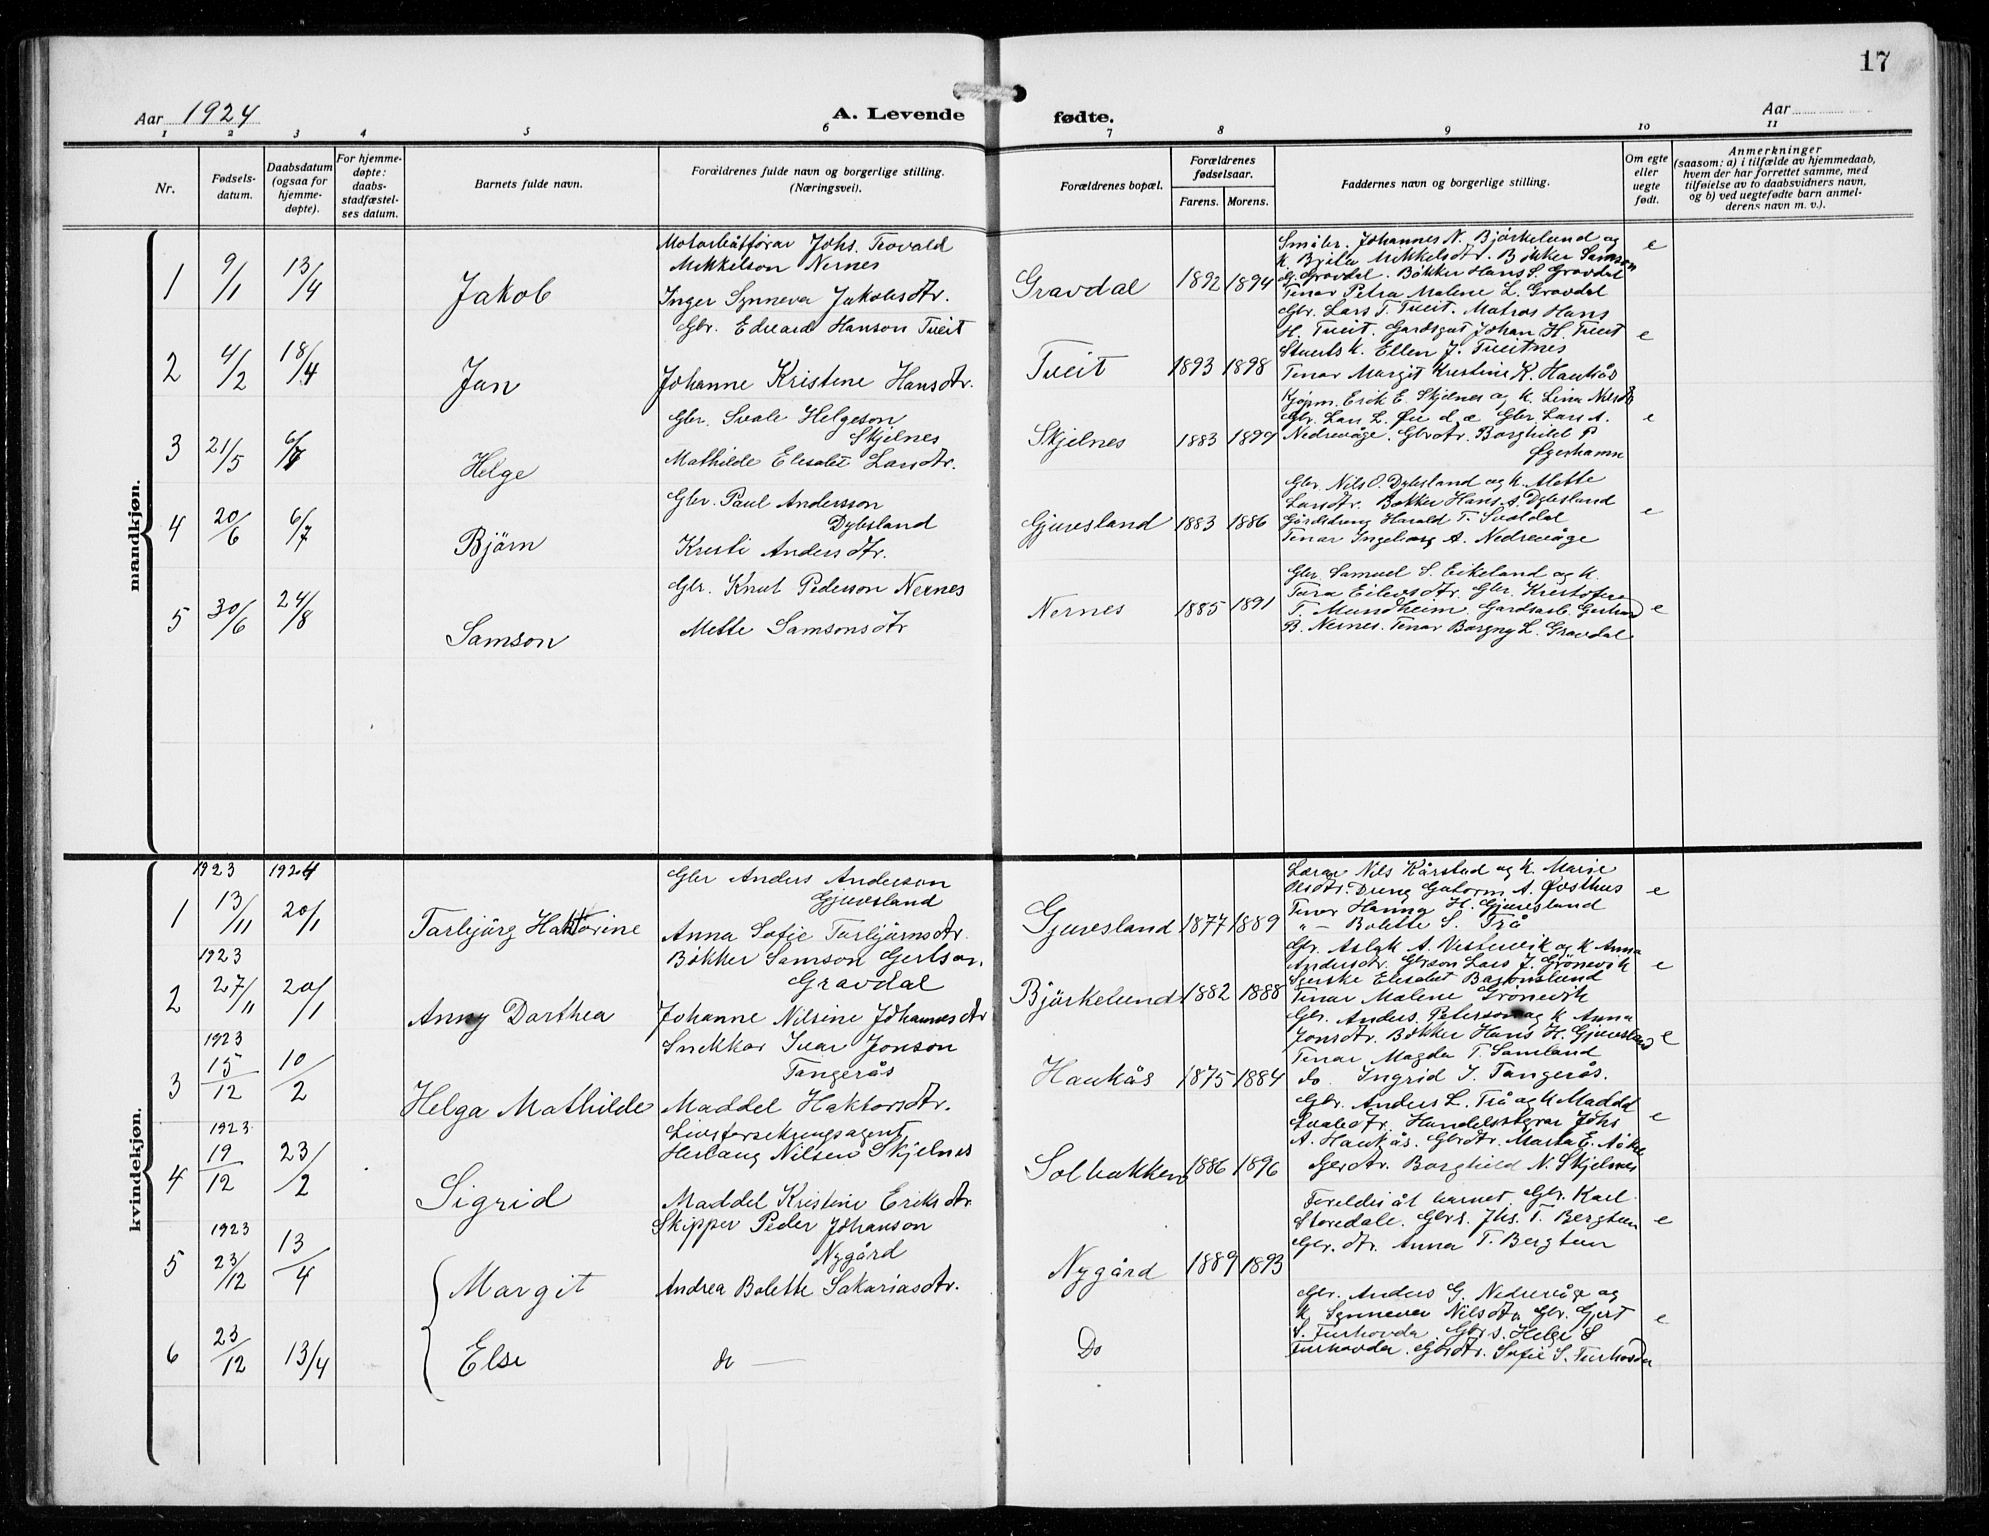 17
Aar 1924
A. Levende fødte.
Aar
1 2 3 4 5 6 7 8 9 10 11
Nr.
Fødsels-
datum.
Daabsdatum
(ogsaa for
hjemme-
døpte).
For hjemme-
døpte:
daabs-
stadfæstel-
ses datum.
Barnets fulde navn.
Forældrenes fulde navn og borgerlige stilling.
(Næringsvei).
Forældrenes bopæl.
Forældrenes
fødselsaar.
Farens. Morens.
Faddernes navn og borgerlige stilling.
Om egte
eller
uegte
født.
Anmerkninger
(saasom: a) i tilfælde av hjemmedaab,
hvem der har forrettet samme, med
tilføielse av to daabsvidners navn,
og b) ved uegtefødte barn anmel-
derens navn m. v.).
mandkjøn.
1 9/1 13/4 Jakob
Motorbåtførar Johs. Trovald
Mikkelson Nernes
Inger Synneva Jakobsdtr.
Gravdal 1892 1894
Småbr. Johannes N. Bjørkelund og
K. Brita Mikkelsdtr. Bøkker Samson
G. Gravdal. Bøkker Hans S. Gravdal
Tenar Petra Malene L. Gravdal
e
2 4/2 18/4 Jan
Gbr. Edvard Hanson Tveit
Johanne Kristine Hansdtr.
Tveit 1893 1898
Gbr. Lars T. Tveit. Matros Hans
H. Tveit. Gardsgut Johan H. Tveit
Stuerts k. Ellen J. Tveitnes
Tenar Margit Kristine K. Haukås
e
3 21/5 6/7 Helge
Gbr. Svale Helgeson
Skjelnes
Mathilde Elisabet Larsdtr.
Skjelnes 1883 1899
Kjøpm. Erik E. Skjelnes og k. Lina Nilsdtr
Gbr. Lars L. Øie d.e. Gbr. Lars A.
Nedrevåge. Gbrdtr. Borghild P
Øyerhamn
e
4 20/6 6/7 Bjørn
Gbr. Paul Andersson
Dybsland
Kristi Andersdtr.
Gjuvsland 1883 1886
Gbr. Nils O. Dybsland og k. Mette
Larsdtr. Bøkker Hans A. Dybsland
Gårdsdreng Harald T. Svoldal
Tenar Ingeborg A. Nedrevåge
e
5 30/6 24/8 Samson
Gbr. Knut Pederson Nernes
Mette Samsonsdtr
Nernes 1885 1891
Gbr. Samuel S. Eikeland og k.
Tura Eilevsdtr. Gbr. Kristofer
T. Mundheim. Gardsarb. Gerhard
B. Nernes. Tenar Borgny L. Gravdal
e
kvindekjøn.
1923 1924
1 13/11 20/1 Torbjørg Haktorine
Gbr Anders Anderson
Gjuvsland
Anna Sofie Torbjørnsdtr.
Gjuvsland 1877 1889
Lærar Nils Kårstad og k. Marie
Olsdtr. Dreng Gutorm A. Øvsthus
Tenar Hanna H. Gjuvsland
" – Bolette S. Trå
e
1923
2 27/11 20/1 Anny Dorthea
Bøkker Samson Gertson
Gravdal
Johanne Nilsine Johannesdtr
Bjørkelund 1882 1888
Gbr. Aslak A. Vestervik og k Anna
Andersdtr. Gbrson Lars J. Grønevik
Syerske Elisabet
Tenar Malene Grønevik
e
1923
3 15/12 10/2 Helga Mathilde
Snekkar Ivar Jonson
Tangerås
Maddel Haktorsdtr.
Haukås 1875 1884
Gbr. Anders Peterson og k Anna
Jonsdtr. Bøkker Hans H. Gjuvsland
Tenar Magda T. Samland
do. Ingrid I. Tangerås.
e
1923
4 19/12 23/2 Sigrid
Livsforsekringsagent
Herlaug Nilsen Skjelnes
Maddel Kristine Eriksdtr
Solbakken 1886 1896
Gbr. Anders L. Trå og k Maddel
Svaledtr. Handelsstyrar Johs
A. Haukås. Gbrdtr. Marta E. Nøkl
Gbrdtr. Borghild N. Skjelnes
e
1923
5 23/12 13/4 Margit
Skipper Peder Johanson
Nygård
Andrea Bolette Sakariasdtr.
Nygård 1889 1893
Foreldri åt barnet. Gbr. Karl
Storedale. Gbrs. Jhs. T. Bergtun
Gbr. dtr. Anna T. Bergtun
e
6 23/12 13/4 Else
do —
Do
Gbr. Anders G. Nedrevåge og
k. Synneva Nilsdtr. Gbr. Gjert
S. Furhovda. Gbrs. Helge S
Furhovda. Gbrdtr. Sofie S. Furhovda
e